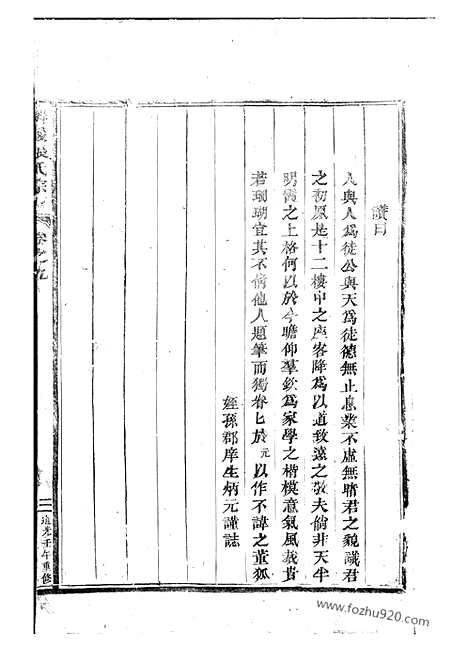 讚曰
人與人為徒公與天為徒德無止息業不虛無睹君之貌識君
之初原是十二樓中之座客降為以道致遠之敬夫倘非天半
明霞之上格何以於今瞻仰羣欽為家學之楷模意氣風裁貴
若珊瑚宜其不倩他人題筆而獨眷匕於元以作不諱之董狐
姪孫郡庠生炳元謹誌
氏宗
卷之九
道光壬午重修
www.fozhu920.com